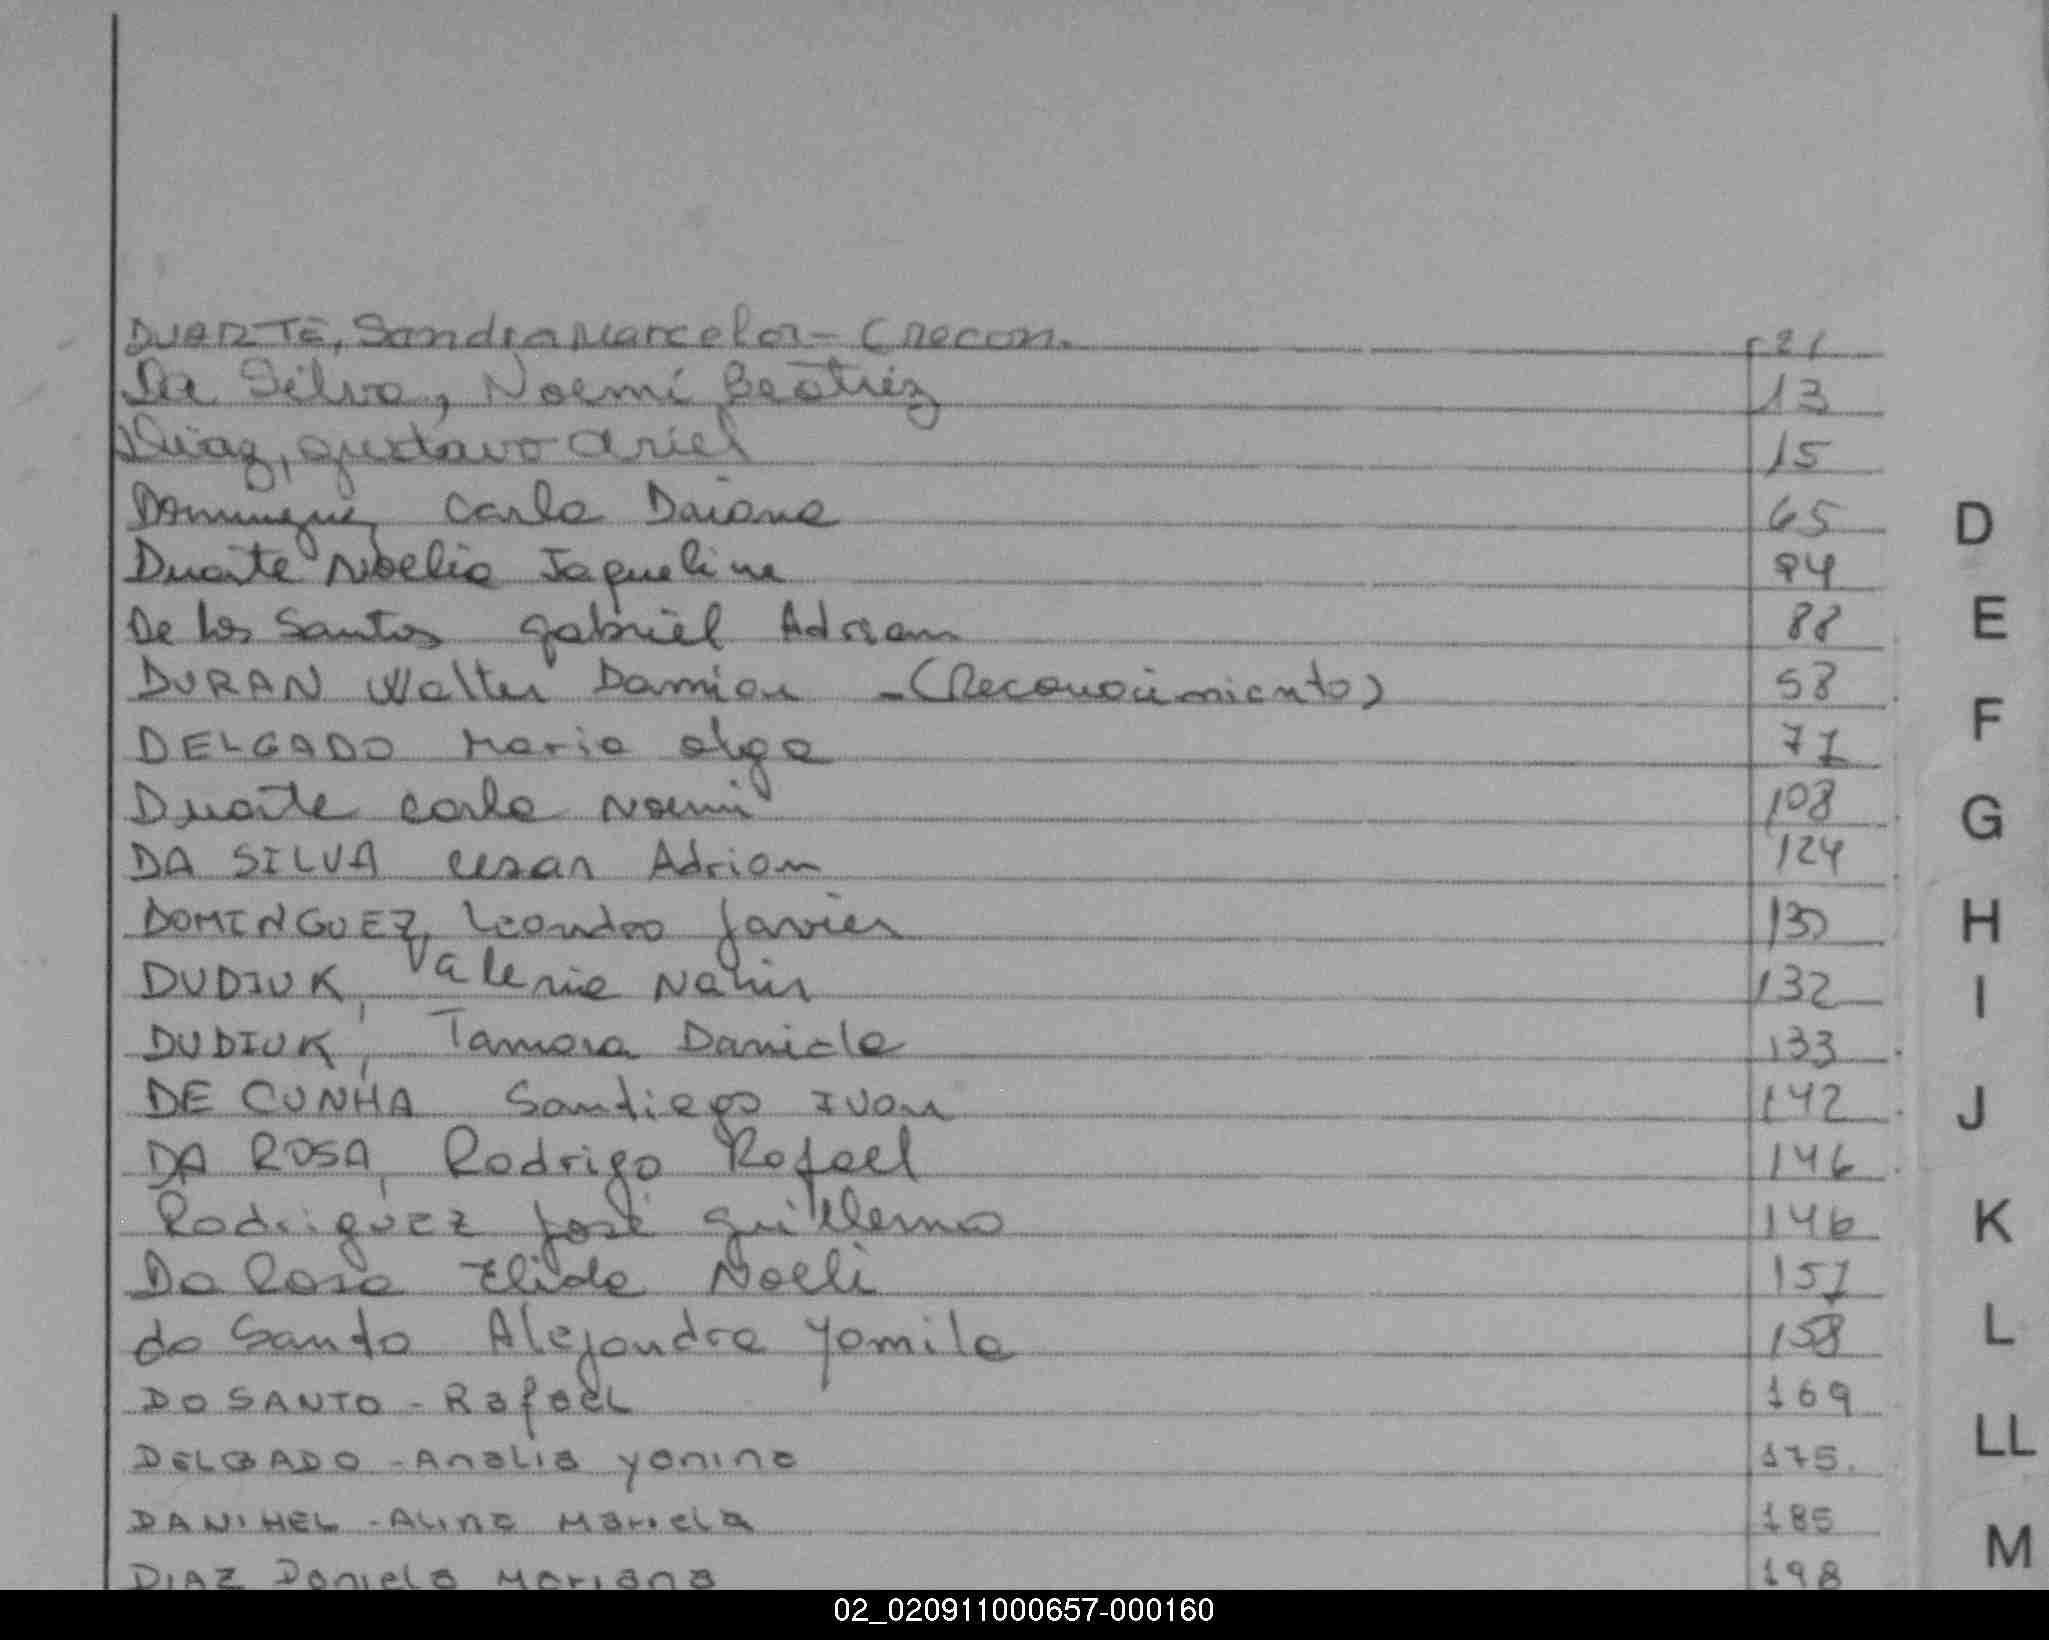 DUARTE, Sandra Marcela - (recon. 21
Da Silva, Noemí Beatriz 13
Diaz, Gustavo Ariel 15
Dominguez, Carla Daiana 65
Duarte Noelia Jaqueline 94
De los Santos Gabriel Adrian 88
DURAN Walter Damian - (Reconocimiento) 58
DELGADO Maria Olga 71
Duarte Carla Noemi 108
DA SILVA Cesar Adrian 124
DOMINGUEZ, Leandro Javier
DUDIUK, Valeria Nahir 132
DUDIUK, Tamara Daniela 133
DE CUNHA Santiego Ivan 142
DA ROSA, Rodrigo Rafael 146
Rodriguez José Guillermo 146
Da Rosa Elida Noeli 157
do Santo Alejandra Yamila 158
DO SANTO - Rafael 169
DELGADO - Analia Yanina 175.
DANIHEL - Alina Mariela 185
DIAZ Daniela Mariana 198
D
E
F
G
H
I
J
K
L
LL
M
02_020911000657-000160